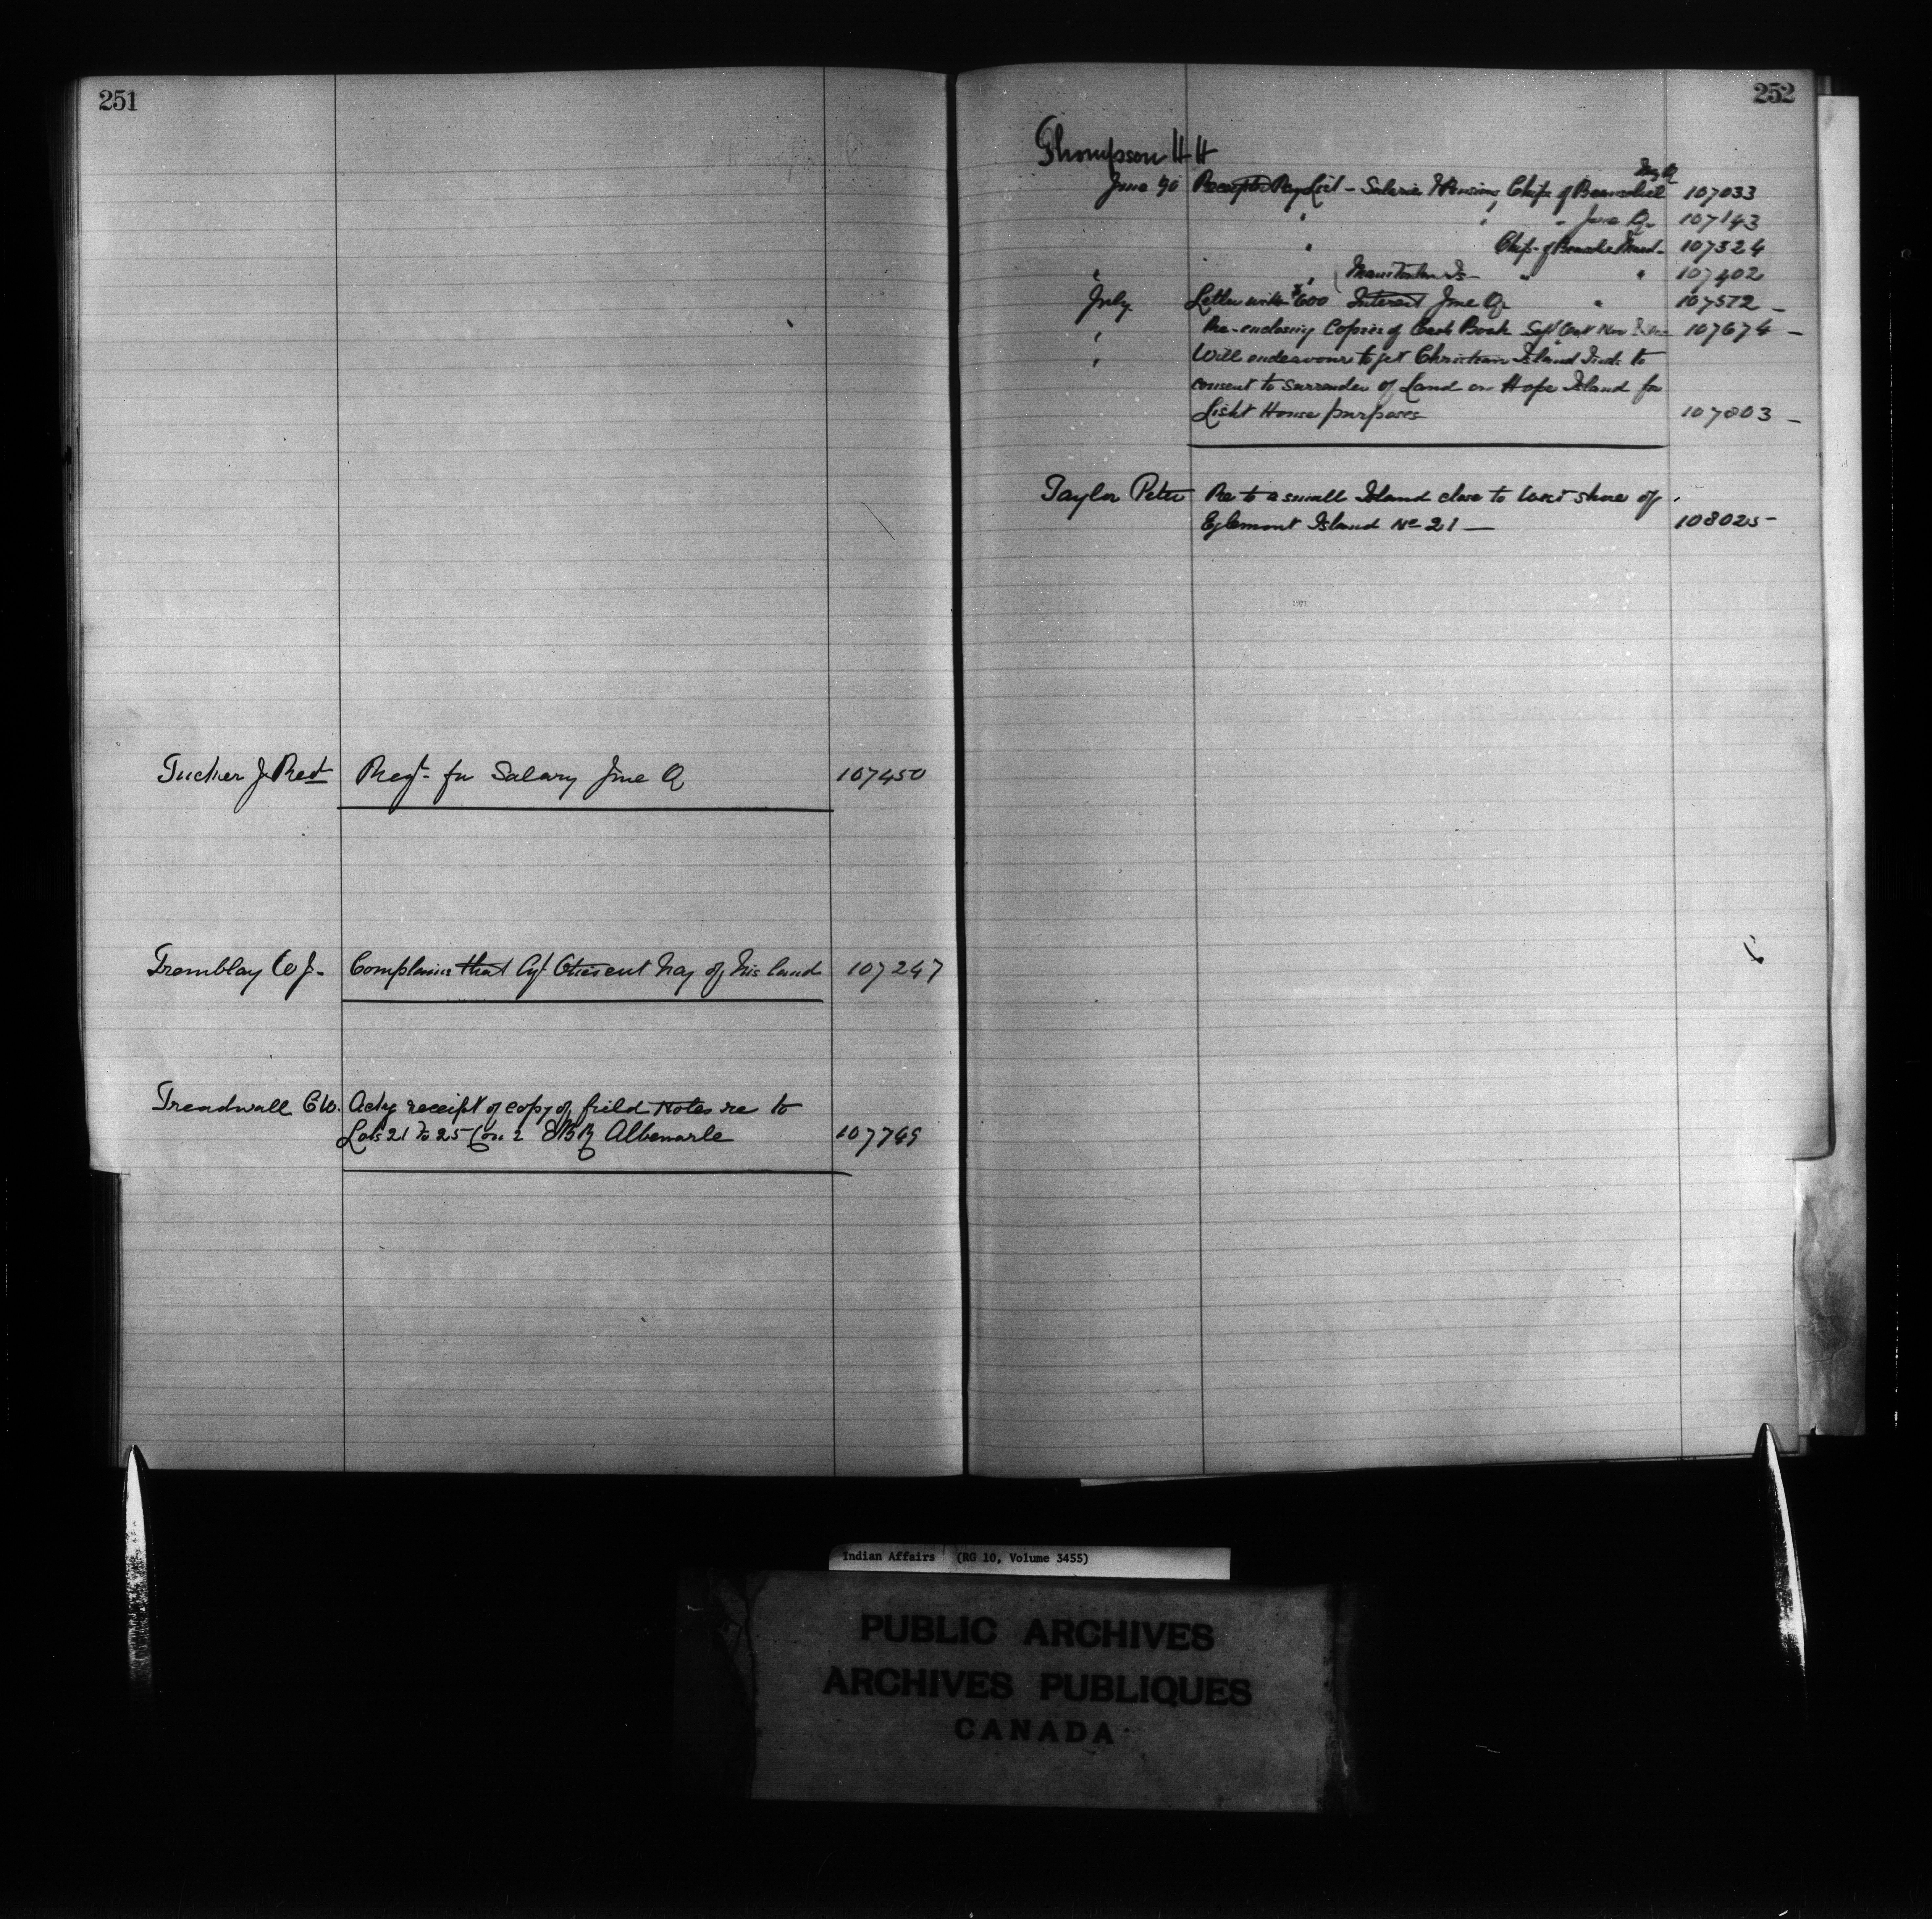 251
Tucker J Revd Reqt for Salary June Q 107450
Tremblay W J. Complains that cut hay of his land 107247
Treadwall C W. Ackg receipt of copy of field Notes re to
Lots 21 to 25 Con 2 E B R Albemarle 107749
252
Thompson H H
May Q
June 90 Pay List - Salaries & Pensions Chips of Beausoleil 107033
" " " June Q 107143
" Chips. of 107324
" " Manitoulin Is " " 107402
July Letter with $600 Interest June Q " 107572 -
" Re-enclosing Copies of Cash Book Sept Oct Nov & Dec 107674 -
" Will endeavour to get Christian Island Inds to
consent to surrender of Land on Hope Island for
Light House purposes 107803 -
Taylor Peter Re to a small Island close to West shore of
Eglemont Island No 21 - 108025 -
Indian Affairs (RG 10, Volume 3455)
PUBLIC ARCHIVES
ARCHIVES PUBLIQUES
CANADA